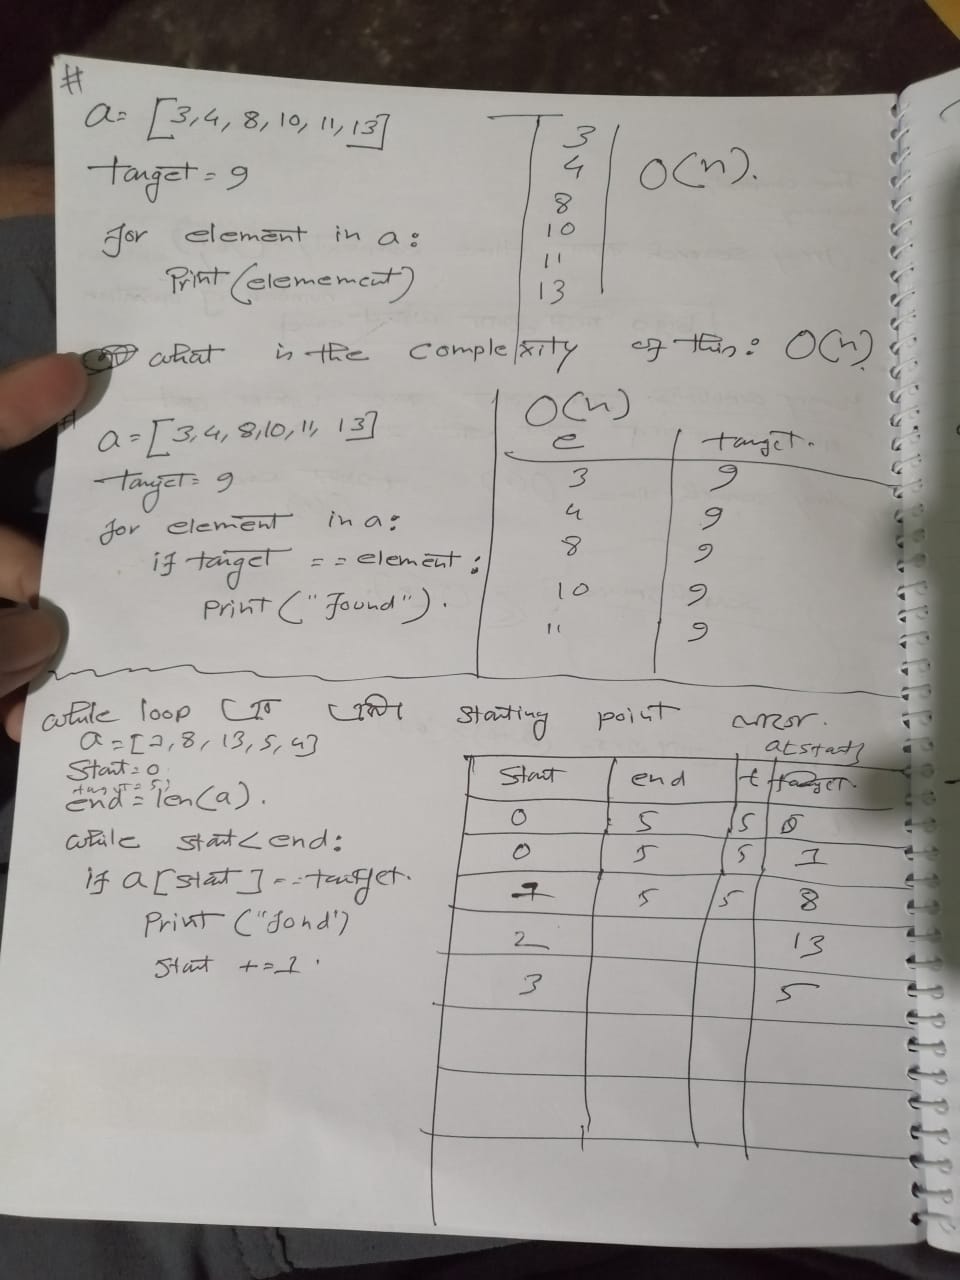 #
a = [3,4, 8, 10, 11, 13]
target = 9
for element in a:
Print(elemement)
3
4
8
10
11
13
O(n).
what is the complexity of this: O(n)
#
a = [3,4, 8,10, 11, 13]
target = 9
for element in a:
if target == element:
Print ("found").
O(n)
e target.
3 9
4 9
8 9
10 9
11 9
while loop starting point
a = [2, 8, 13, 5, 4]
Start = 0
target = 5;
end = len(a).
while start < end:
if a[start] == target.
Print ("fond")
start += 1.
a[start]
Start end t target.
0 5 5
0 5 5 1
1 5 5 8
2 13
3 5